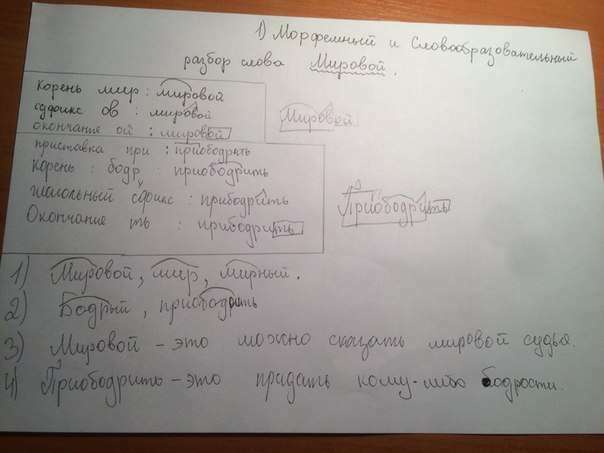 1) Морфемный и Словообразовательный
разбор слова Мировой.
Корень мир: мировой
суффикс ов: мировой
окончания ой: мировой
Мировой.
приставка при: приободрить
Корень: бодр: приободрить
глагольный суфикс: приободрить
Окончание ть: приободрить
Приободрить
1) Мировой, мир, мирный.
2) Бодрый, приободрить
3) Мировой - это можно сказать мировой судья.
4) Приободрить - это придать кому-либо бодрости.